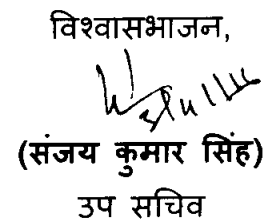 विश्वासभाजन,
(संजय कुमार सिंह)
उप सचिव